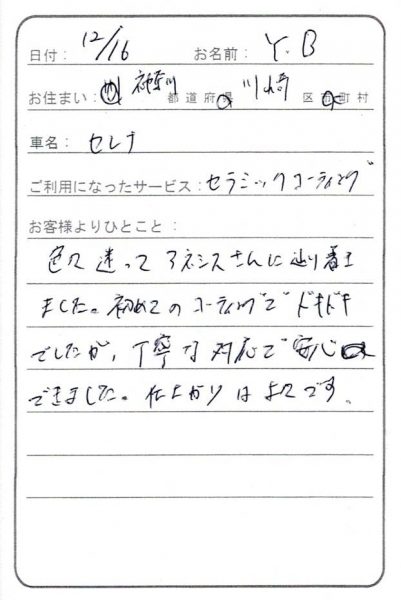 日付： 12/16 お名前： Y.B
お住まい： 神奈川 都道府県 川崎 区市町村
車名： セレナ
ご利用になったサービス：セラミックコーティング
お客様よりひとこと：
色々迷ってアネシスさんに辿り着き
ました。初めてのコーティングでドキドキ
でしたが、丁寧な対応で安心
できました。仕上がりは よです。